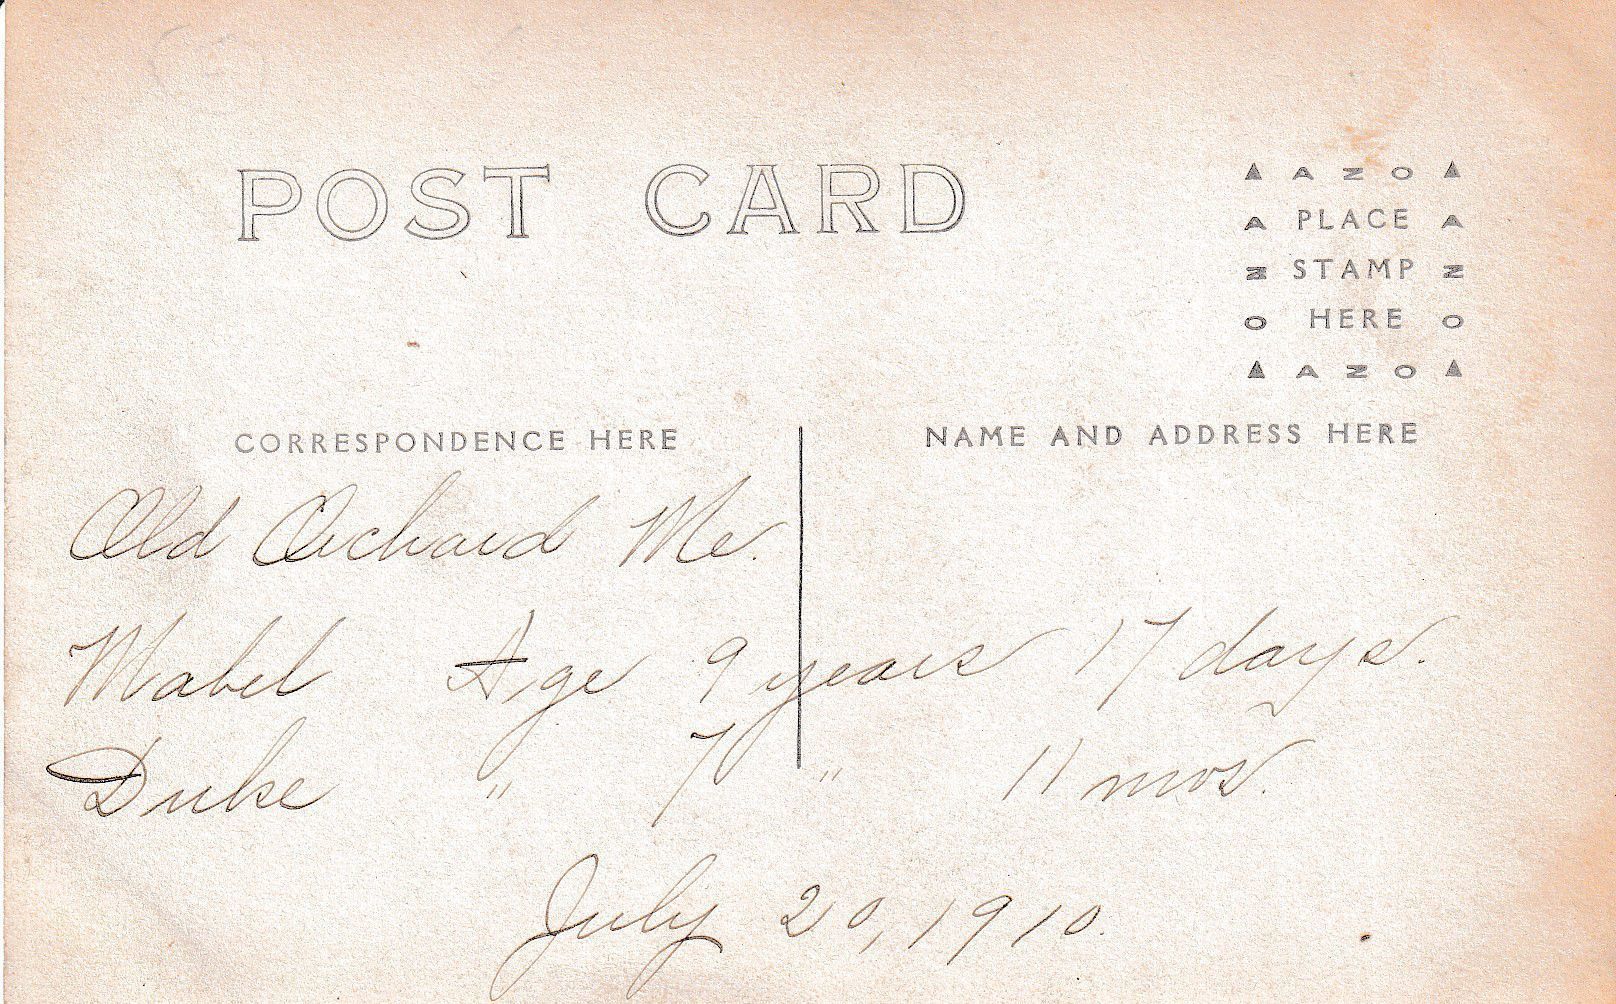 POST CARD
▲ A Z O ▲
A PLACE A
Z STAMP Z
O HERE O
▲ A Z O ▲
CORRESPONDENCE HERE
NAME AND ADDRESS HERE
Old Orchard Me.
Mabel Age 9 years 17 days.
Duke " 7 " 11 mos.
July 20, 1910.